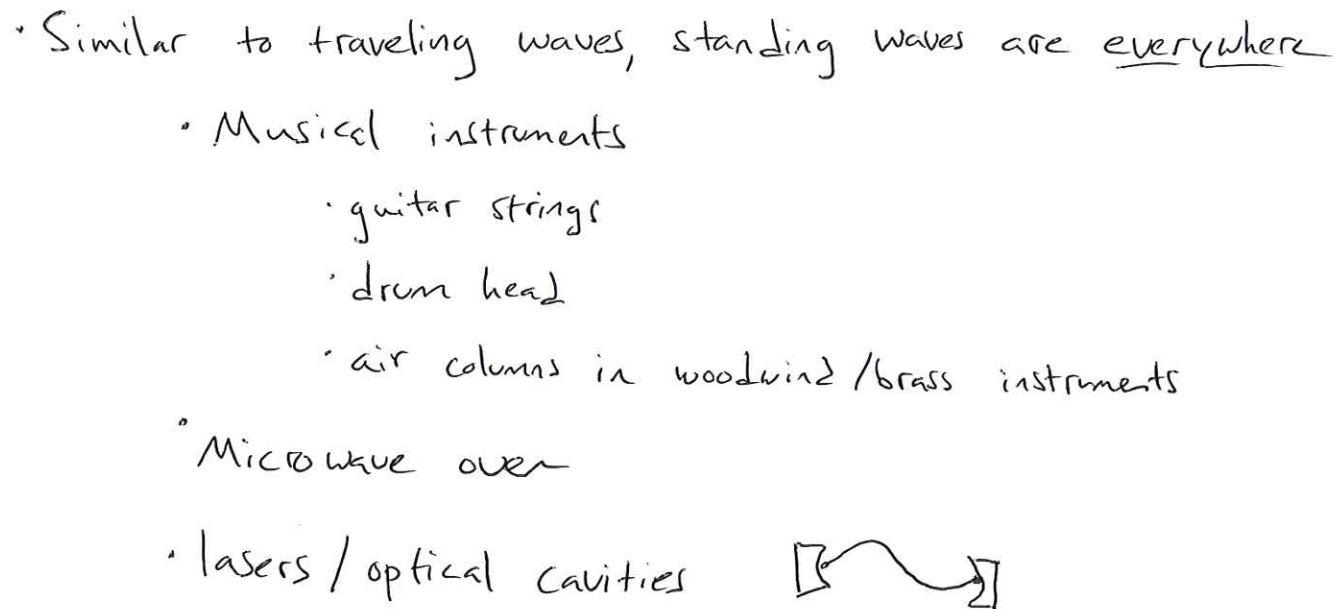 · Similar to traveling waves, standing waves are everywhere
· Musical instruments
· guitar strings
· drum head
· air columns in woodwind/brass instruments
· Microwave oven
· lasers/optical cavities